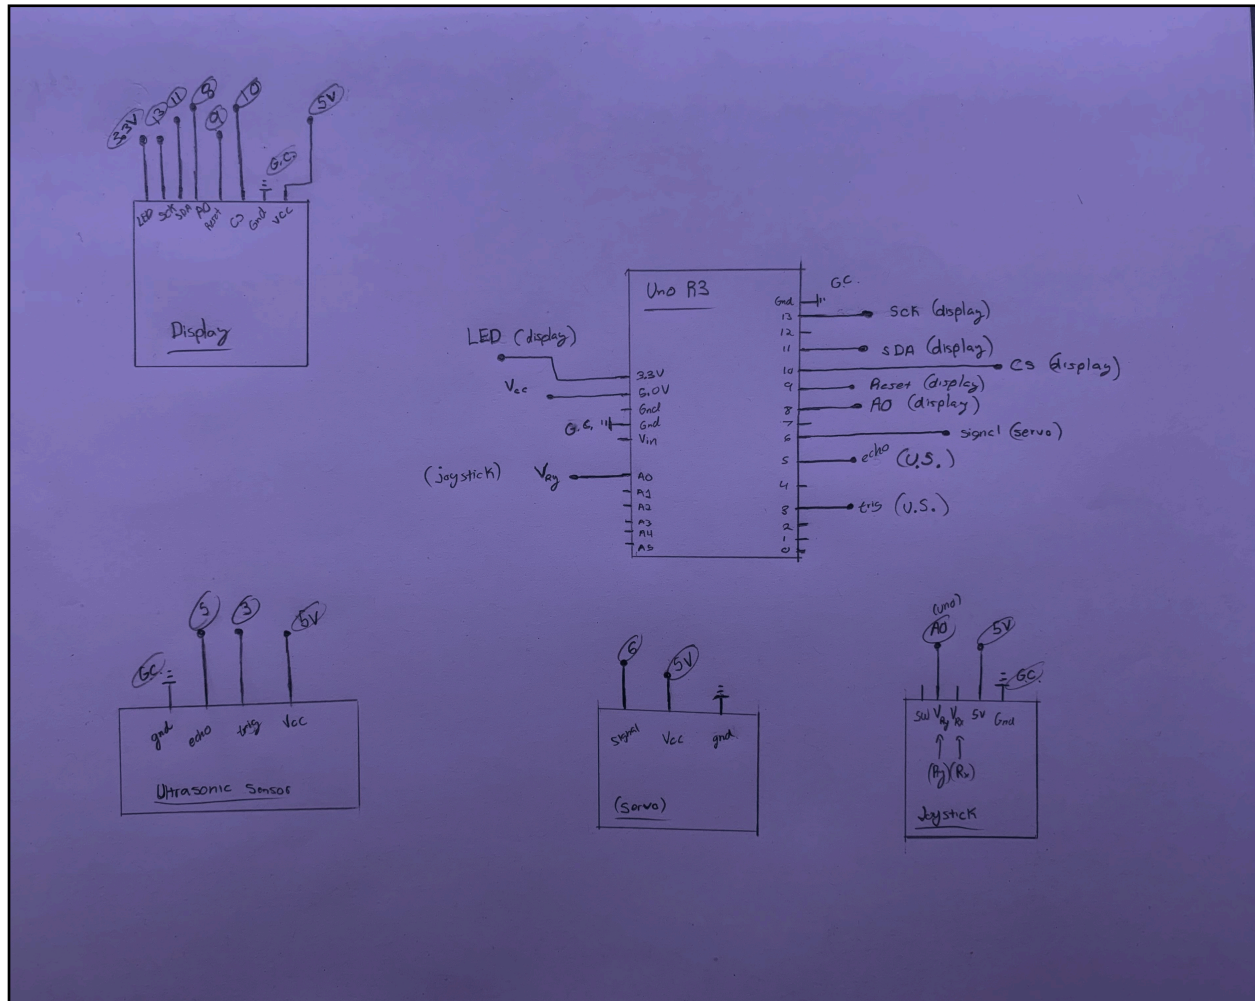 3.3V 13 11 8 9 10 G.C. 5V
LED SCK SDA A0 Reset CS Gnd VCC
Display
Uno R3
LED (display)
Vcc
G.C.
(joystick) VRy
3.3V
5.0V
Gnd
Gnd
Vin
A0
A1
A2
A3
A4
A5
G.C.
Gnd
13 SCK (display)
12
11 SDA (display)
10 CS (display)
9 Reset (display)
8 A0 (display)
7
6 signal (servo)
5 echo (U.S.)
4
3 trig (U.S.)
2
1
0
G.C. 5 3 5V
gnd echo trig Vcc
Ultrasonic Sensor
6 5V
Signal Vcc gnd
(Servo)
(Uno)
A0 5V GC.
SW VRy VRx 5V Gnd
(Ry) (Rx)
Joystick